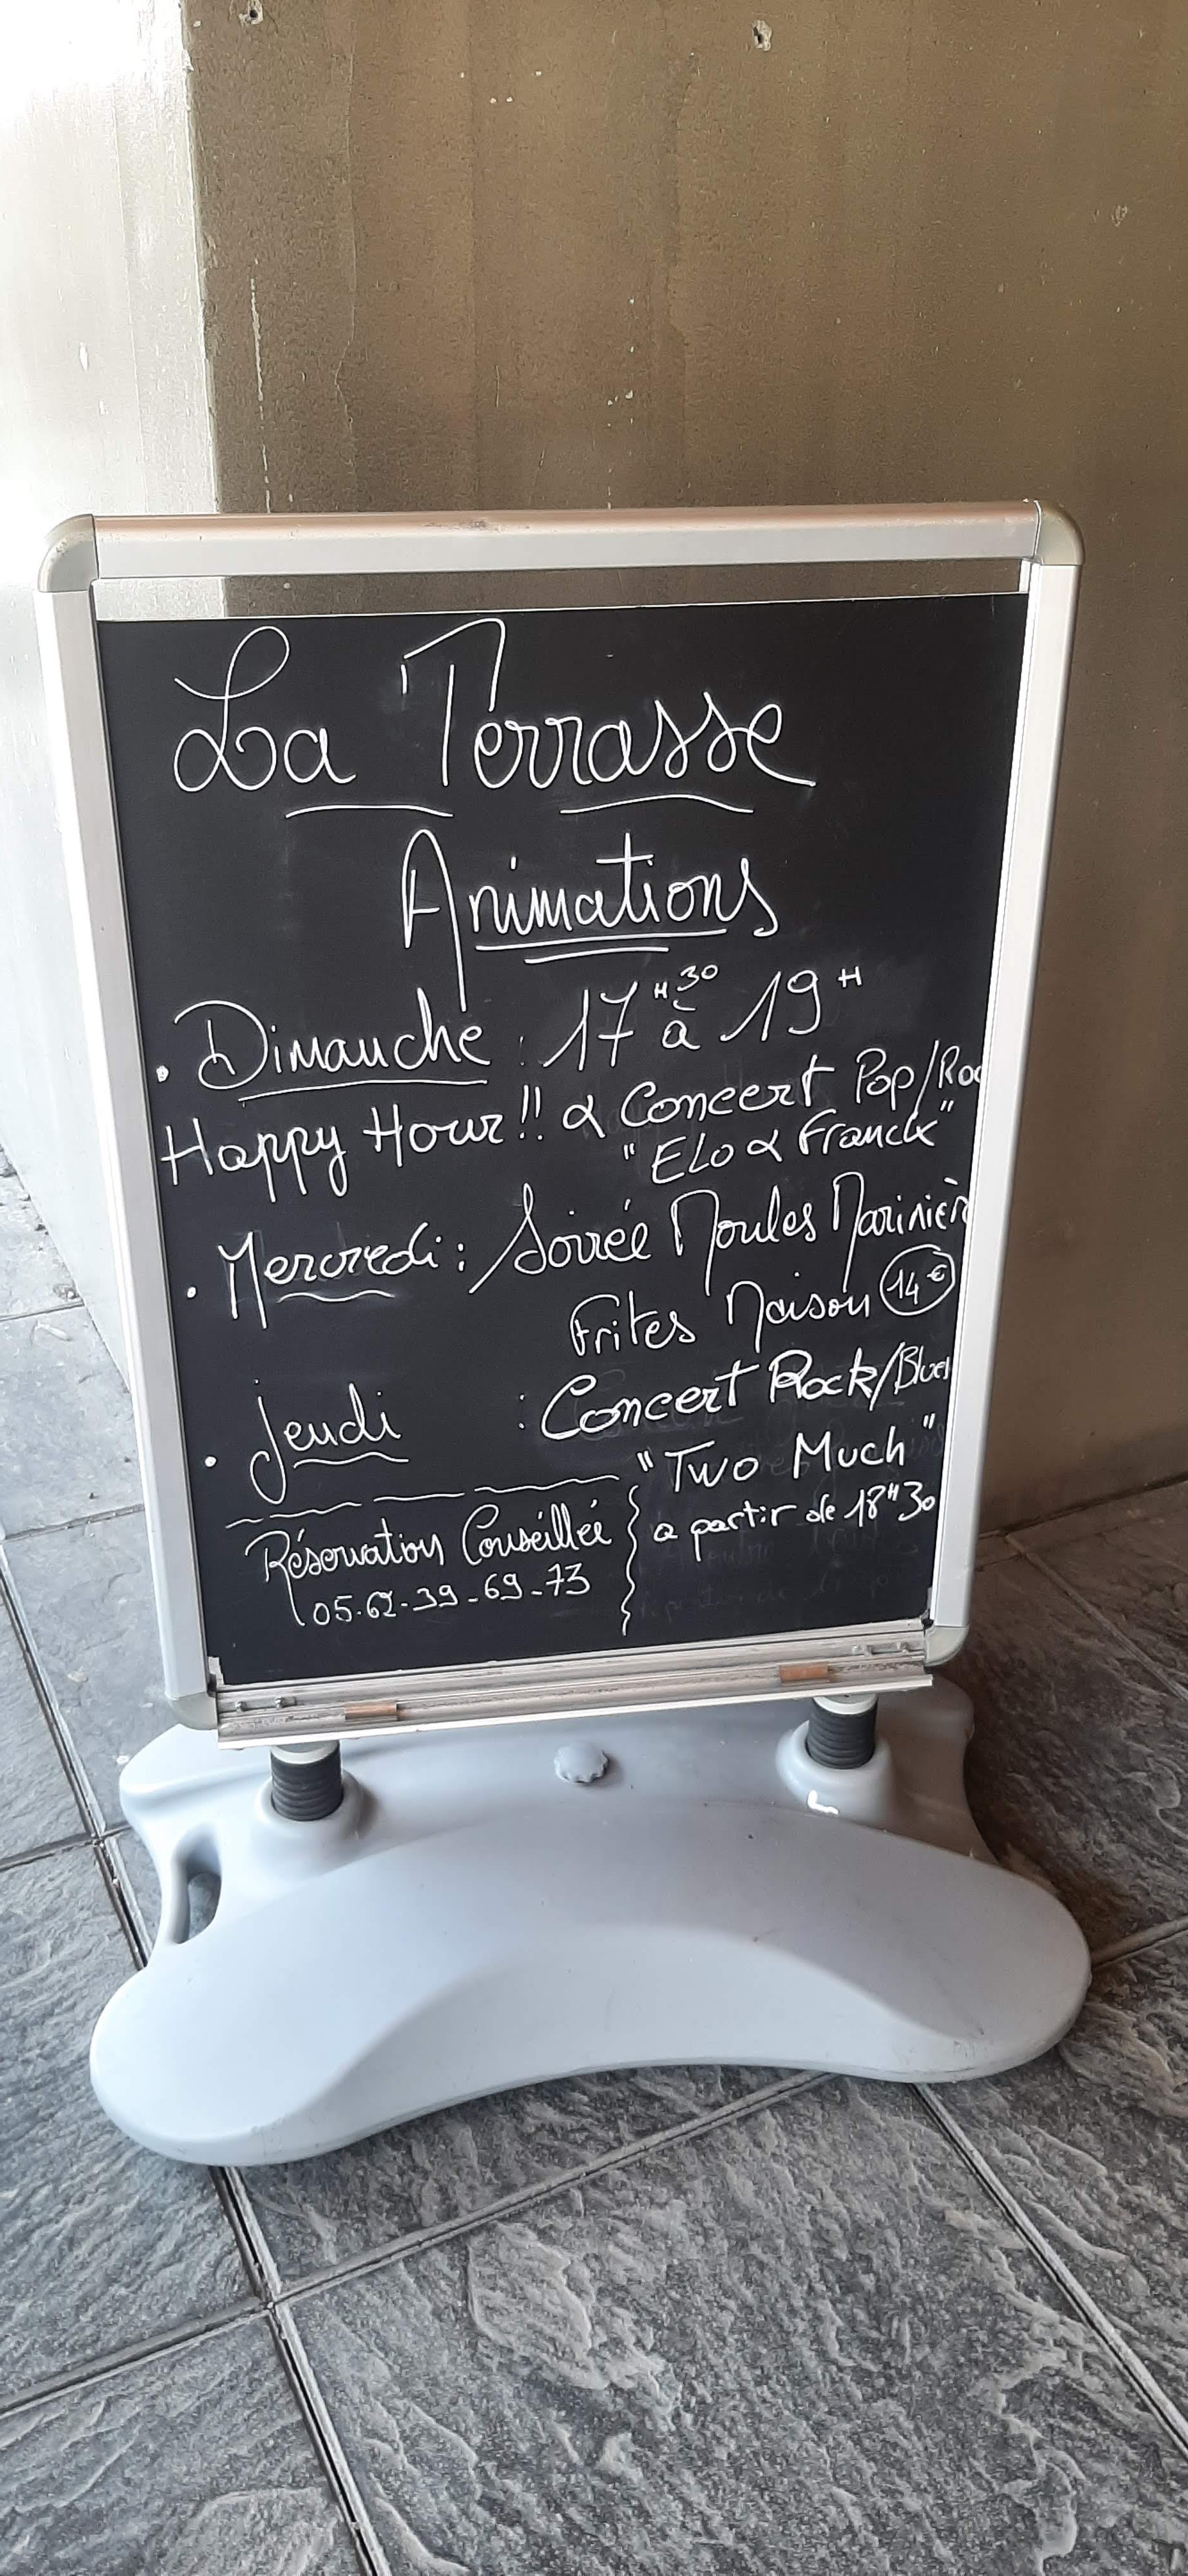 La Terrasse
Animations
• Dimanche : 17H30 à 19H
Happy Hour!! & Concert Pop/Roc
"Elo & Franck"
• Mercredi : Soirée Moules Marinièr
Frites Maison 14€
• Jeudi : Concert Rock/Blues
"Two Much"
a partir de 18H30
Réservation Conseillée
05.62-39-69-73